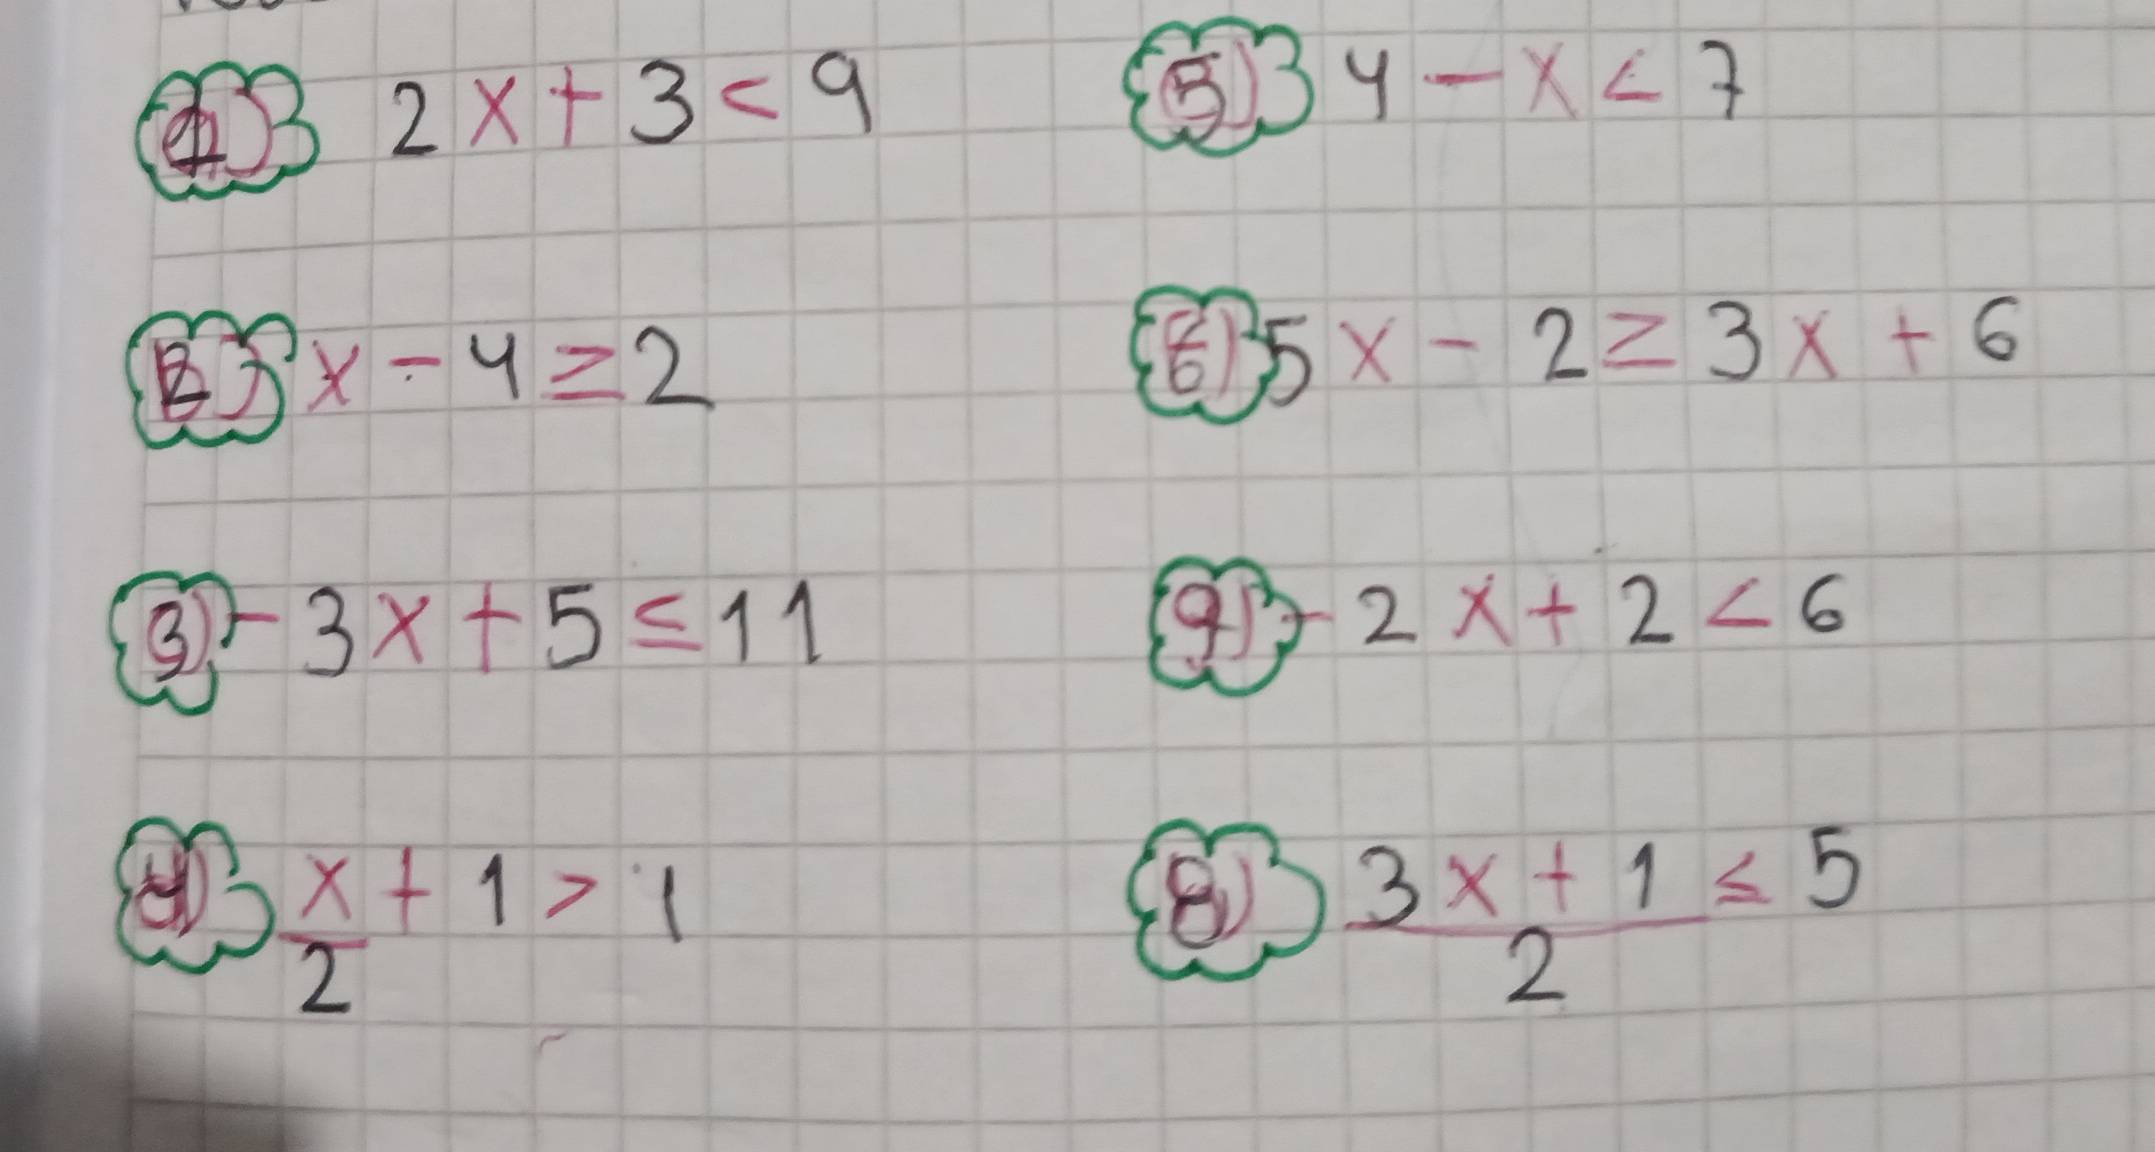 1) 2x + 3 < 9
2) x - 4 ≥ 2
3) - 3x + 5 ≤ 11
4) x/2 + 1 > 1
5) 4 - x < 7
6) 5x - 2 ≥ 3x + 6
9) - 2x + 2 < 6
8) (3x + 1)/2 ≤ 5